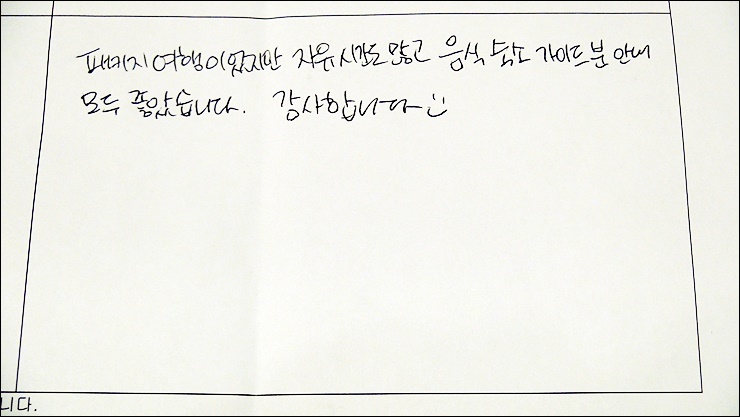 패키지 여행이었지만 자유시간도 많고 음식 숙소 가이드분 안내
모두 좋았습니다. 감사합니다 :)
니다.